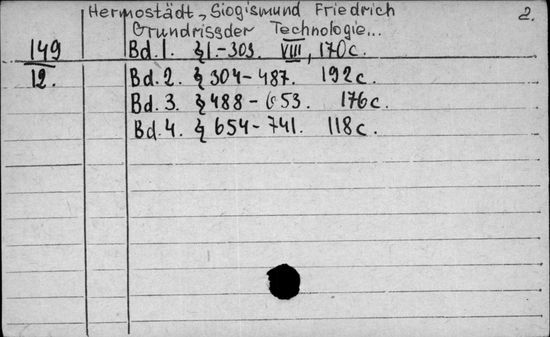 Hermostädt, Siogismund Friedrich 2.
Grundrissder Technologie...
149 Bd. 1. § 1.-303. VIII, 170c.
12. Bd. 2. § 304-487. 192c.
Bd. 3. § 488-653. 176c.
Bd. 4. § 654-741. 118c.